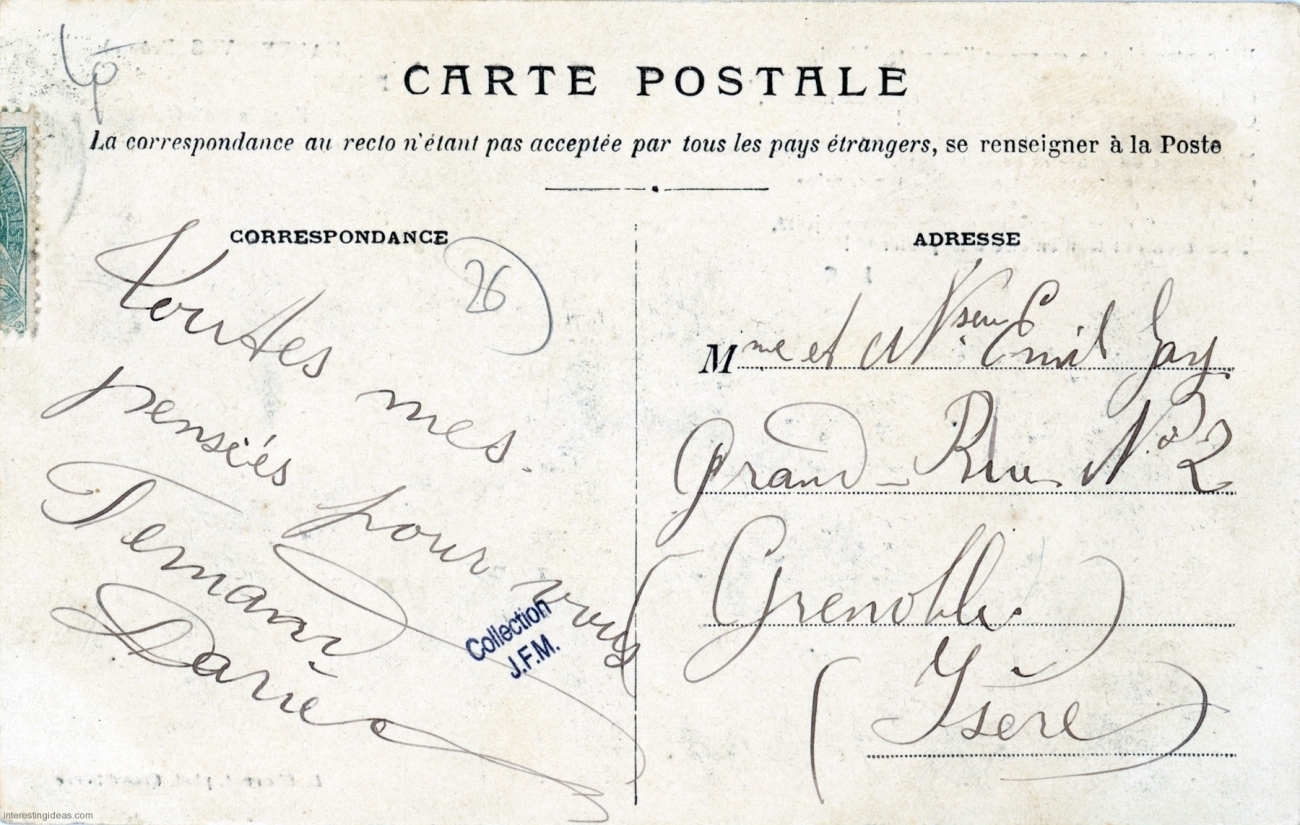 CARTE POSTALE
La correspondance au recto n'étant pas acceptée par tous les pays étrangers, se renseigner à la Poste
CORRESPONDANCE
26
Toutes
mes
pensées
pour vous
Fernand
Darier
Collection
J.F.M.
ADRESSE
Mme et Nseur Emil Gay
Grand-Rue No 2
Grenoble
(Isère)
interestingideas.com